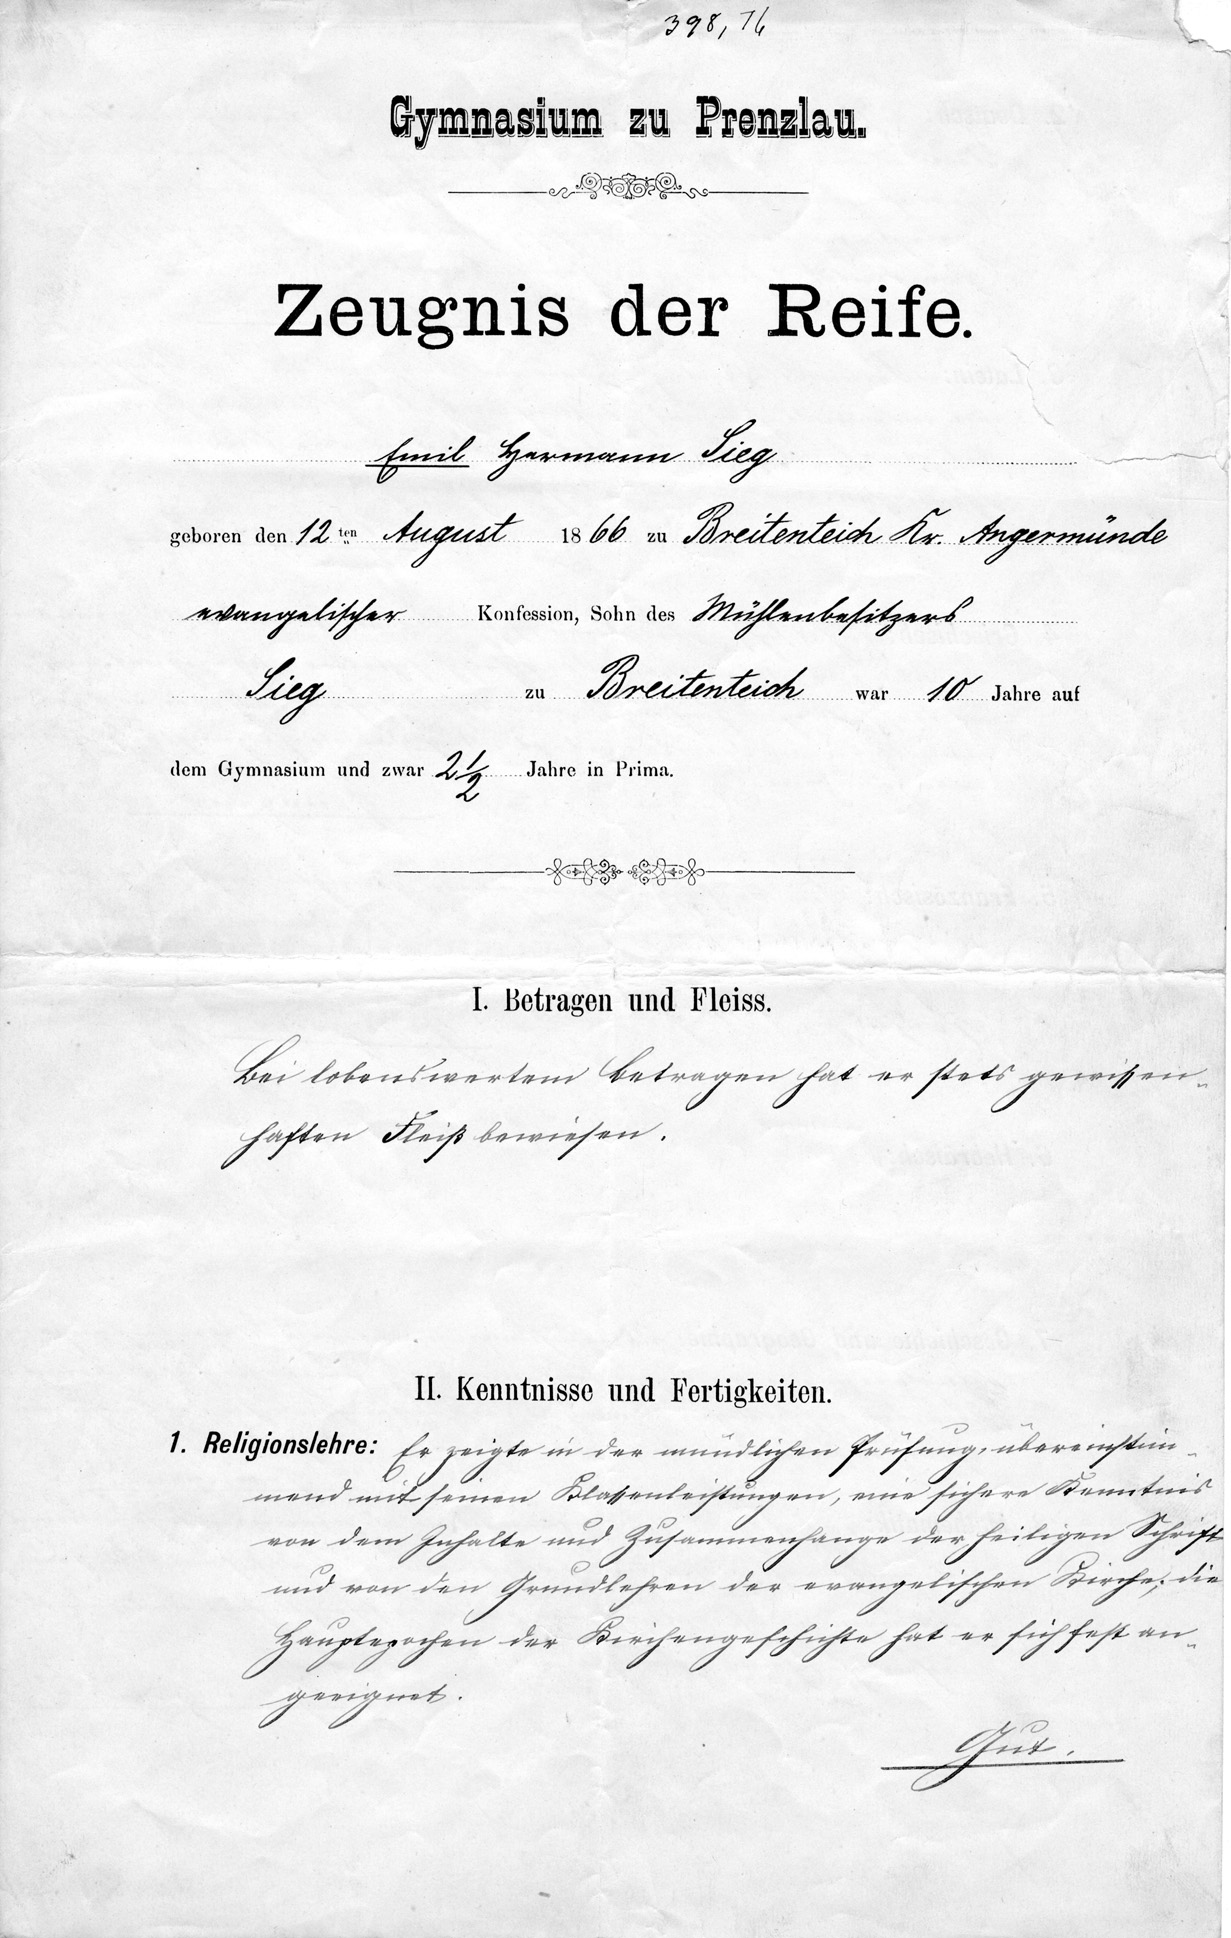 398, 76
Gymnasium zu Prenzlau.
Zeugnis der Reife.
Emil Hermann Sieg
geboren den 12ten August 1866 zu Breitenteich Kr. Angermünde
evangelischer Konfession, Sohn des Mühlenbesitzers
Sieg zu Breitenteich war 10 Jahre auf
dem Gymnasium und zwar 2 1/2 Jahre in Prima.
I. Betragen und Fleiss.
Bei lobenswertem Betragen hat er stets gewissen-
haften Fleiß bewiesen.
II. Kenntnisse und Fertigkeiten.
1. Religionslehre: Er zeigte in der mündlichen Prüfung, übereinstim-
mend mit seinen Klassenleistungen, eine sichere Kenntnis
von dem Inhalte und Zusammenhange der heiligen Schrift
und von den Grundlehren der evangelischen Kirche; die
Hauptepochen der Kirchengeschichte hat er sich fest an-
geeignet.
Gut.